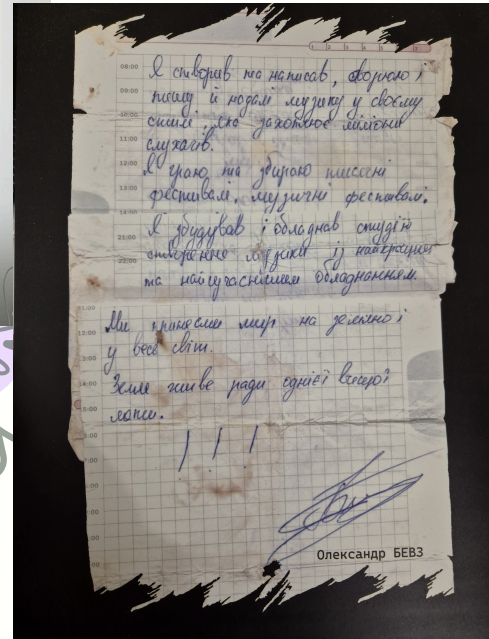 Я створив та написав, творю і
пишу й надалі музику у своєму
стилі, яка захоплює мільйони
слухачів.
Я граю та збираю тисячні
фестивалі, музичні фестивалі.
Я збудував і обладнав студію
створення музики із найкращим
та найсучаснішим обладнанням.
Ми принесли мир на землю і
у весь світ.
Земля живе ради однієї вищої
мети.
! ! !
Олександр БЕВЗ